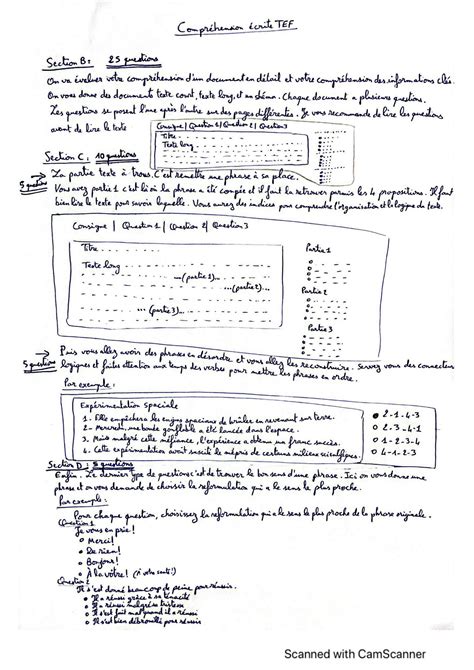 Compréhension écrite TEF
Section B: 25 questions
On va évaluer votre compréhension d'un document en détail et votre compréhension des informations clés.
On vous donne des documents texte court, texte long, et un shéma. Chaque document a plusieurs questions.
Les questions se posent l'une après l'autre sur des pages différentes. Je vous recommande de lire les questions
avant de lire le texte
Consigne | Question 1 | Question 2 | Question 3
Titre
Texte long
Section C: 10 questions
→ La partie texte à trous. C'est remettre une phrase à sa place.
5 questions
Vous avez partie 1 c'est là où la phrase a été coupée et il faut la retrouver parmis les 4 propositions. Il faut
bien lire le texte pour savoir laquelle. Vous aurez des indices pour comprendre l'organisation et la logique du texte.
Consigne | Question 1 | Question 2 | Question 3
Titre
Texte long
...(partie 1)...
...(partie 2)...
...(partie 3)...
Partie 1
Partie 2
Partie 3
→ Puis vous allez avoir des phrases en désordre et vous allez les reconstruire. Servez vous des connecteurs
5 questions
logiques et faites attention aux temps des verbes pour mettre les phrases en ordre.
Par exemple:
Expérimentation spaciale
1. Elle empêchera les engins spaciaux de brûler en revenant sur terre.
2. Mercredi, une boule gonflable a été lancée dans l'espace.
3. Mais malgré cette méfiance, l'expérience a obtenu un franc succès.
4. Cette expérimentation avait suscité le mépris de certains milieux scientifiques.
2-1-4-3
2-4-3-1
1-2-3-4
4-1-2-3
Section D: 5 questions
Enfin. Le dernier type de questions c'est de trouver le bon sens d'une phrase. Ici on vous donne une
phrase et on vous demande de choisir la reformulation qui a le sens le plus proche.
Par exemple:
Pour chaque question, choisissez la reformulation qui a le sens le plus proche de la phrase originale.
Question 1
Je vous en prie!
Merci!
De rien!
Bonjour!
À la vôtre! (à votre santé!)
Question 2
Il s'est donné beaucoup de peine pour réussir.
Il a réussi grâce à sa ténacité
Il a réussi malgré sa tristesse
Il s'est fait mal quand il a réussi
Il s'est bien débrouillé pour réussir
Scanned with CamScanner